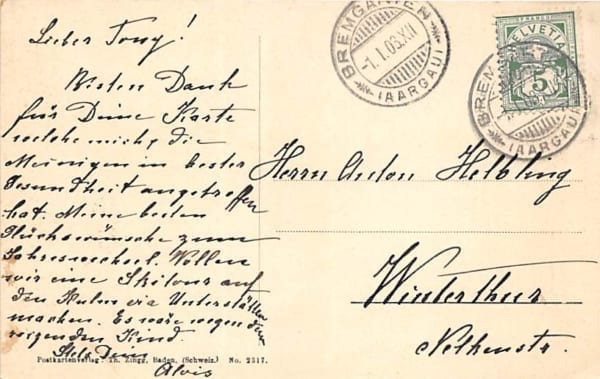 Lieber Tony!
Besten Dank
für Deine Karte
welche mich & die
Meinigen in bester
Gesundheit angetroffen
hat. Meine besten
Glückswünsche zum
Jahreswechsel. Wollen
wir eine Skitour auf
den Kulm via Unterstätten
machen. Es wäre wegen dem
Kind.
Stets Dein
Alois
Postkartenverlag: Th. Zingg, Baden, (Schweiz.) No. 2317.
BREMGARTEN
-1.I.08.XII
(AARGAU)
FRANCO
HELVETIA
5
BREM
(AARGAU)
Herrn Anton Helbling
Winterthur
Nelkenstr.